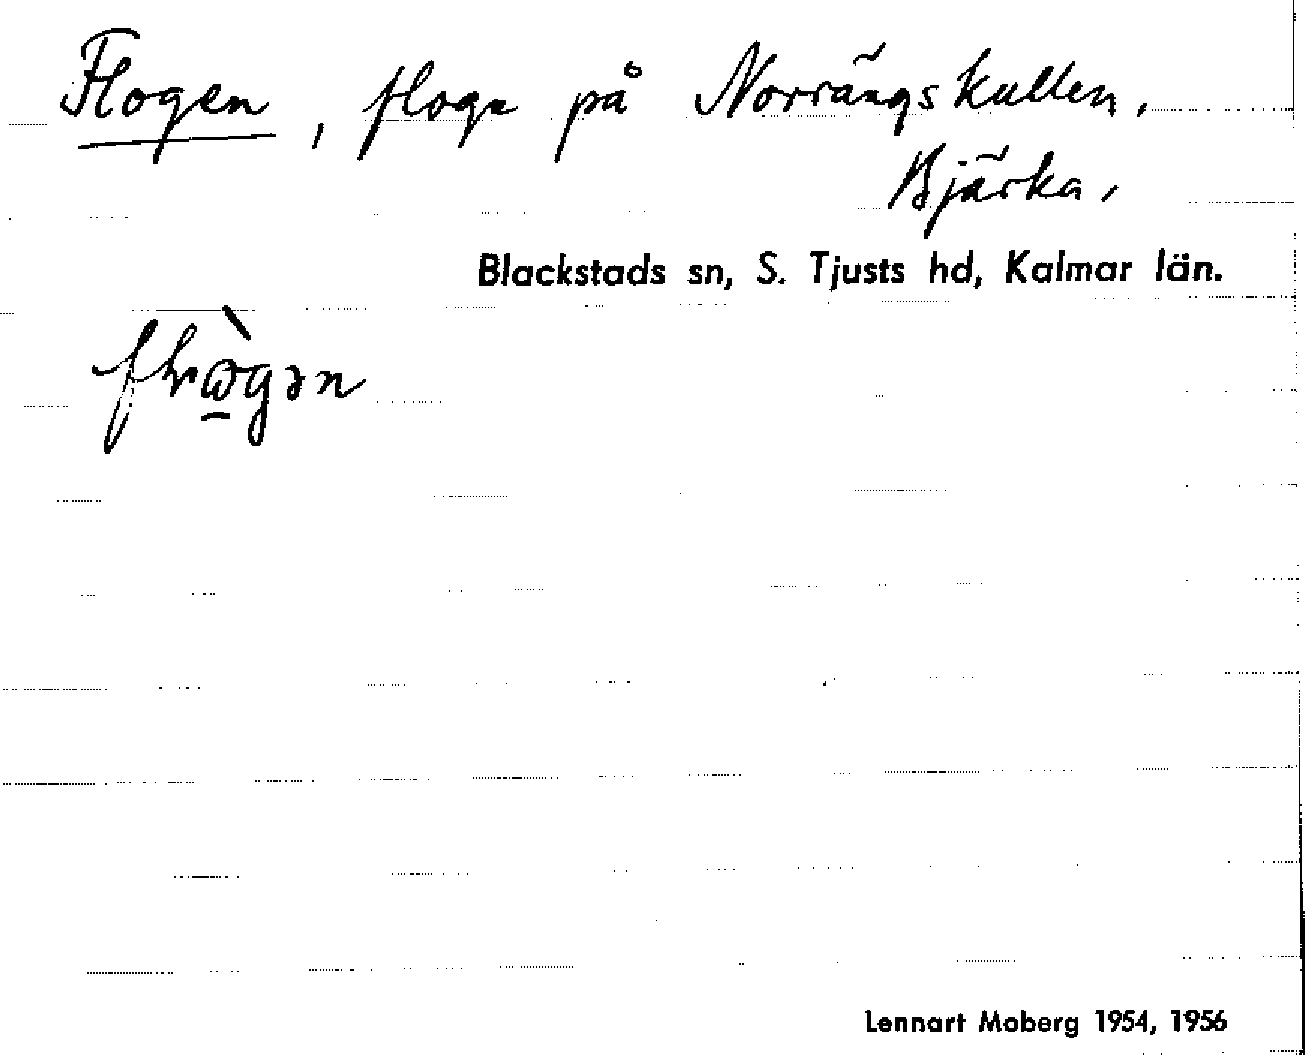 Flogen, floge på Norrängskullen,
Bjärka,
Blackstads sn, S. Tjusts hd, Kalmar län.
Lennart Moberg 1954, 1956